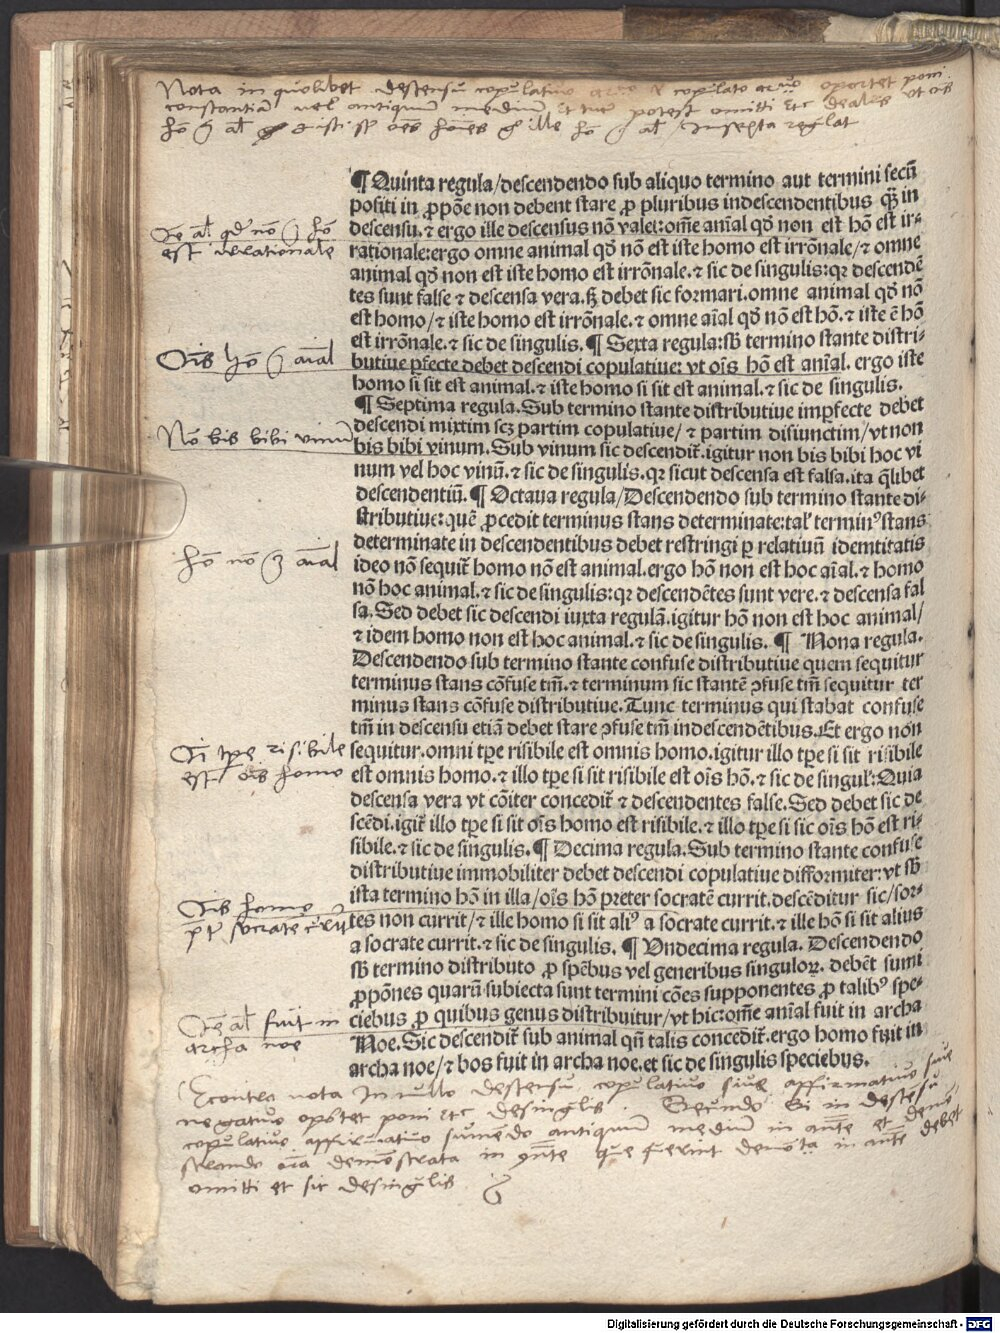 Nota in quolibet descensu copulatiuo et copulato oportet poni
constantiam uel antiquum medium et tunc potest omitti etc
¶ Quinta regula/descendendo sub aliquo termino aut termini secū
positi in ꝓpōe non debent stare ꝓ pluribus indescendentibus q̄ꝫ in
descensu. ⁊ ergo ille descensus nō valet: om̄e anīal qd̄ non est hō est ir-
rationale: ergo omne animal qd̄ nō est iste homo est irrōnale/⁊ omne
animal qd̄ non est iste homo est irrōnale. ⁊ sic de singulis: qꝛ descendē
tes sunt false ⁊ descensa vera. sꝫ debet sic formari. omne animal qd̄ nō
est homo/⁊ iste homo est irrōnale. ⁊ omne aīal qd̄ nō est hō. ⁊ iste ē hō
est irrōnale. ⁊ sic de singulis. ¶ Sexta regula: sb̄ termino stante distri-
butiue ꝑfecte debet descendi copulatiue: vt oīs hō est anīal. ergo iste
homo si sit est animal. ⁊ iste homo si sit est animal. ⁊ sic de singulis.
¶ Septima regula. Sub termino stante distributiue imꝑfecte debet
descendi mixtim scꝫ partim copulatiue/⁊ partim disiunctim/vt non
bis bibi vinum. Sub vinum sic descendit̄. igitur non bis bibi hoc vi
num vel hoc vinū. ⁊ sic de singulis. qꝛ sicut descensa est falsa. ita q̄libet
descendentiū. ¶ Octaua regula/Descendendo sub termino stante di-
stributiue: quē ꝓcedit terminus stans determinate: tal' terminꝰ stans
determinate in descendentibus debet restringi ꝑ relatiuū idemtitatis
ideo nō sequit̄ homo nō est animal. ergo hō non est hoc aīal. ⁊ homo
nō hoc animal. ⁊ sic de singulis: qꝛ descendētes sunt vere. ⁊ descensa fal
sa. Sed debet sic descendi iuxta regulā. igitur hō non est hoc animal/
⁊ idem homo non est hoc animal. ⁊ sic de singulis. ¶ Nona regula.
Descendendo sub termino stante confuse distributiue quem sequitur
terminus stans cōfuse tm̄. ⁊ terminum sic stantē ꝯfuse tm̄ sequitur ter
minus stans cōfuse distributiue. Tunc terminus qui stabat confuse
tm̄ in descensu etiā debet stare ꝯfuse tm̄ indescendētibus. Et ergo non
sequitur. omni tꝑe risibile est omnis homo. igitur illo tꝑe si sit risibile
est omnis homo. ⁊ illo tꝑe si sit risibile est oīs hō. ⁊ sic de singul': Quia
descensa vera vt cōiter concedit̄ ⁊ descendentes false. Sed debet sic de
scēdi. igit̄ illo tꝑe si sit oīs homo est risibile. ⁊ illo tꝑe si sic oīs hō est ri-
sibile. ⁊ sic de singulis. ¶ Decima regula. Sub termino stante confuse
distributiue immobiliter debet descendi copulatiue difformiter: vt sb̄
ista termino hō in illa/oīs hō p̄ter socratē currit. descēditur sic/sor-
tes non currit/⁊ ille homo si sit aliꝰ a socrate currit. ⁊ ille hō si sit alius
a socrate currit. ⁊ sic de singulis. ¶ Undecima regula. Descendendo
sb̄ termino distributo ꝓ spēbus vel generibus singuloꝝ. debēt sumi
ꝓpōnes quarū subiecta sunt termini cōes supponentes ꝓ talibꝰ spe-
ciebus ꝓ quibus genus distribuitur/vt hic: om̄e anīal fuit in archa
Noe. Sic descendit̄ sub animal qn̄ talis concedit̄. ergo homo fuit in
archa noe/⁊ bos fuit in archa noe. et sic de singulis speciebus.
est irrationale
Oīs hō ē aīal
Nō bis bibi vinum
hō nō ē aīal
tꝑe risibile
est oīs homo
Oīs homo
p̄t socrate currit
Om̄e aīal fuit in
archa noe
Econtra nota In nullo descensu copulatiuo siue affirmatiuo siue
negatiuo oportet poni etc desinglis. Secundo Si in descēsu
copulatiuo affirmatiuo sumēdo antiquum medium in an̄te et demō
strando oīa demōstrata in ꝯn̄te que fuerint demōta in an̄te debet
omitti et sic desinglis
Digitalisierung gefördert durch die Deutsche Forschungsgemeinschaft - DFG